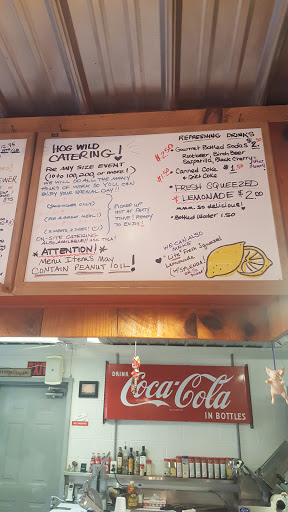 HOG WILD
CATERING!
FOR ANY SIZE EVENT
(10 to 100, 200, or more!)
WE WILL DO ALL THE MANY
HOURS OF WORK SO YOU CAN
ENJOY YOUR SPECIAL DAY!!
PICKED UP
HOT AT PARTY
TIME! READY
TO ENJOY!
ON-SITE CATERING
ALSO AVAILABLE
ATTENTION!
Menu Items May
CONTAIN PEANUT OIL!
REFRESHING DRINKS
Gourmet Bottled Sodas
Rootbeer, Birch Beer
Sarparilla, Black Cherry
Canned Coke
+ Diet Coke
FRESH SQUEEZED
LEMONADE $2.00
mmm so delicious!
Bottled Water 1.50
WE CAN ALSO
MAKE
"Lite" Fresh Squeezed
Lemonade
DRINK
Coca-Cola
IN BOTTLES